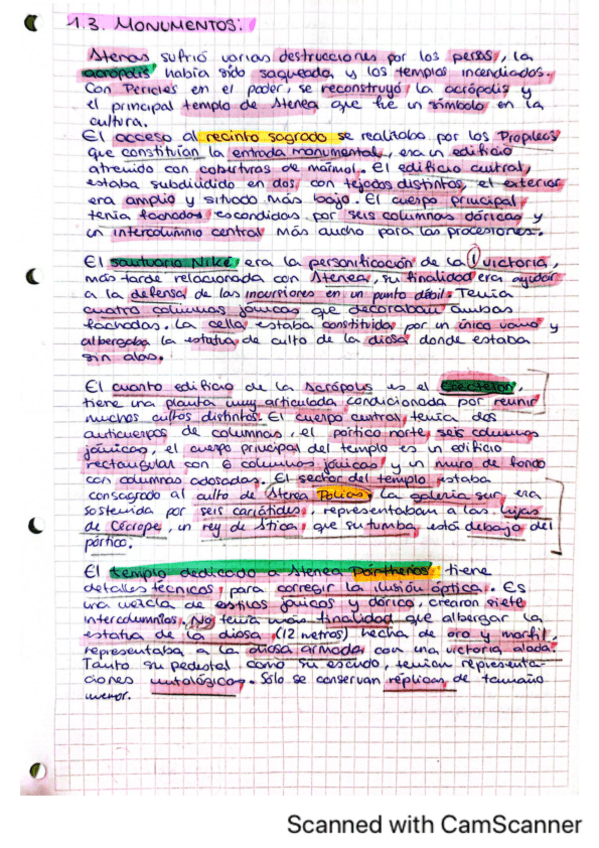 1.3. MONUMENTOS:
Atenas sufrió varias destrucciones por los persas, la
acrópolis había sido saqueada y los templos incendiados.
Con Pericles en el poder, se reconstruyó la acrópolis y
el principal templo de Atenea que fue un símbolo en la
cultura.
El acceso al recinto sagrado se realizaba por los Propileos
que constituían la entrada monumental, era un edificio
atrevido con coberturas de mármol. El edificio central,
estaba subdividido en dos, con tejados distintos, el exterior
era amplio y situado más bajo. El cuerpo principal
tenía fachadas escondidas por seis columnas dóricas y
un intercolumnio central más ancho para las procesiones.
El santuario Niké, era la personificación de la victoria,
más tarde relacionada con Atenea, su finalidad era ayudar
a la defensa de las incursiones en un punto débil. Tenía
cuatro columnas jónicas que decoraban ambas
fachadas. La cella, estaba constituida por un único vano y
albergaba la estatua de culto de la diosa donde estaba
sin alas.
El cuarto edificio de la Acrópolis es el Erecteion,
tiene una planta muy articulada condicionada por reunir
muchos cultos distintos. El cuerpo central tenía dos
anticuerpos de columnas, el pórtico norte, seis columnas
jónicas, el cuerpo principal del templo es un edificio
rectangular con 6 columnas jónicas y un muro de fondo
con columnas adosadas. El sector del templo estaba
consagrado al culto de Atenea Polias. La galería sur, era
sostenida por seis cariátides, representaban a las hijas
de Cécrope, un rey de Ática, que su tumba está debajo del
pórtico.
El templo dedicado a Atenea Párthenos, tiene
detalles técnicos, para corregir la ilusión óptica. Es
una mezcla de estilos jónicos y dórico, crearon siete
intercolumnios. No tenía más finalidad que albergar la
estatua de la diosa (12 metros) hecha de oro y marfil,
representaba a la diosa armada con una victoria alada.
Tanto su pedestal como su escudo, tenían representa-
ciones mitológicas. Sólo se conservan réplicas de tamaño
menor.
Scanned with CamScanner